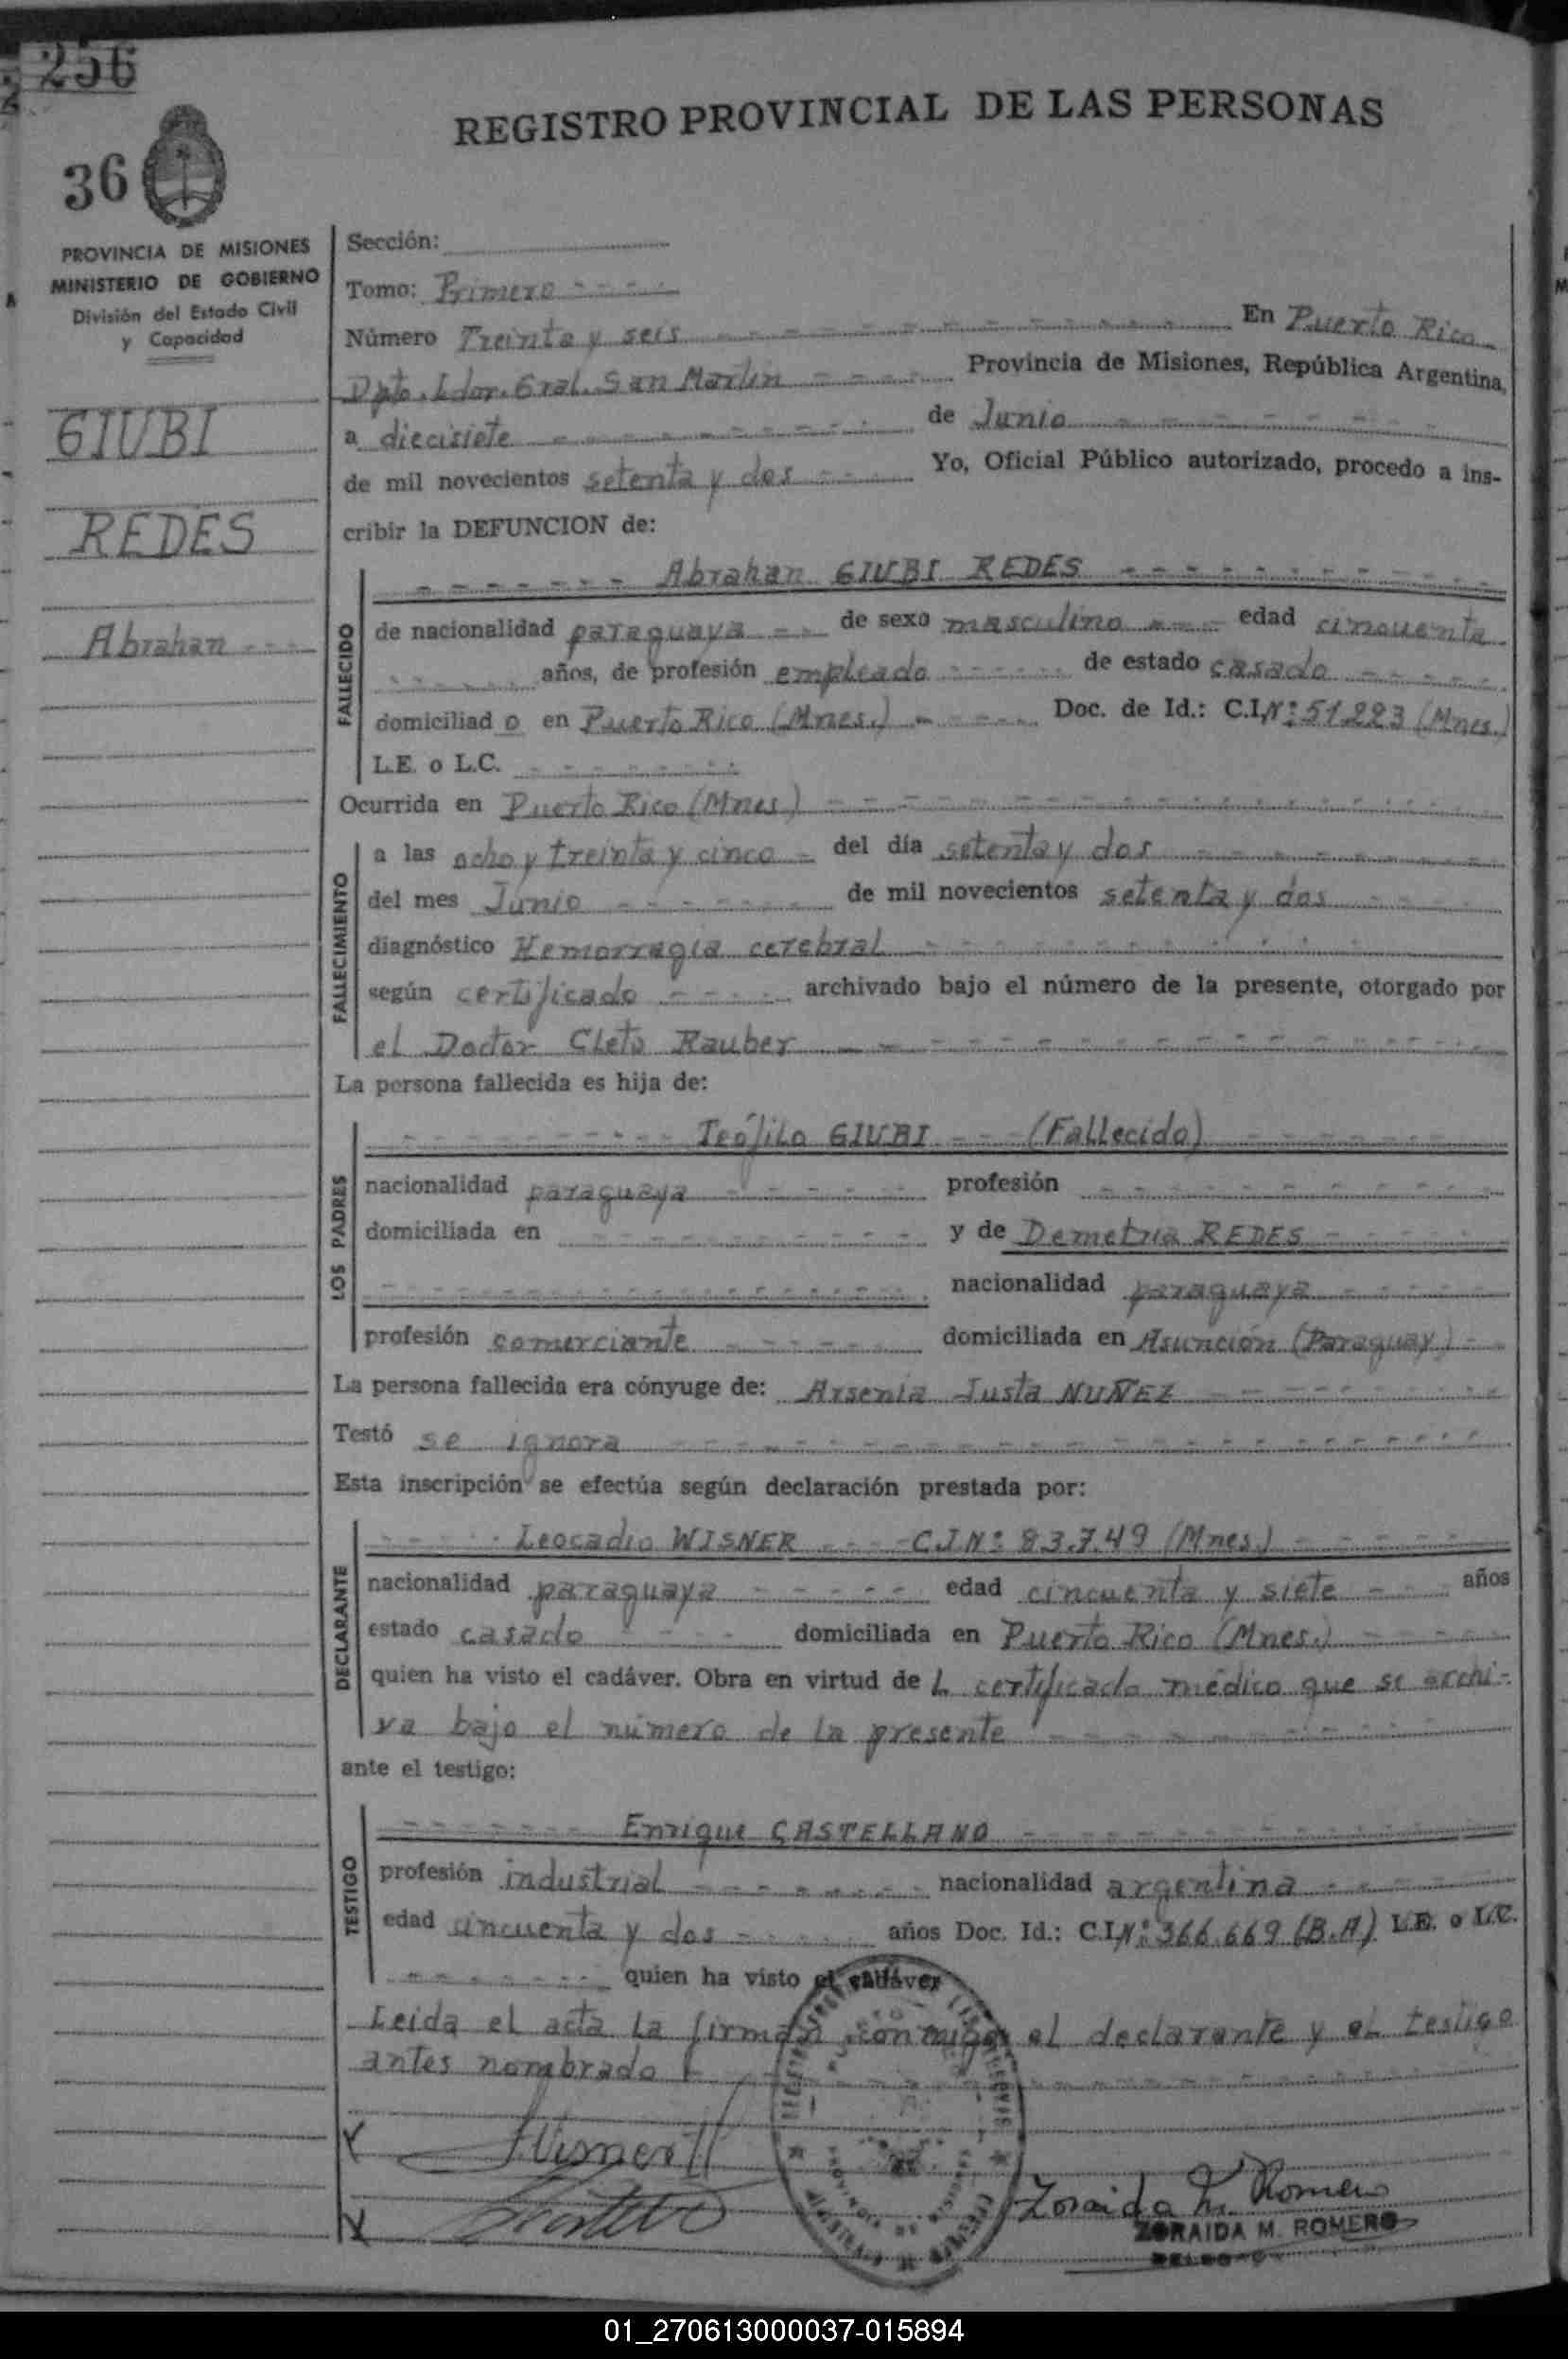 256
REGISTRO PROVINCIAL DE LAS PERSONAS
36
PROVINCIA DE MISIONES
MINISTERIO DE GOBIERNO
División del Estado Civil
y Capacidad
GIUBI
REDES
Abrahan
Sección:
Tomo: Primero
Número Treinta y seis En Puerto Rico
Dpto. Ldor. Gral. San Martín Provincia de Misiones, República Argentina,
a diecisiete de Junio
de mil novecientos setenta y dos Yo, Oficial Público autorizado, procedo a ins-
cribir la DEFUNCION de:
FALLECIDO
Abrahan GIUBI REDES
de nacionalidad paraguaya de sexo masculino edad cincuenta
años, de profesión empleado de estado casado
domiciliad o en Puerto Rico (Mnes.) Doc. de Id.: C.I.Nº 51223 (Mnes.)
L.E. o L.C.
Ocurrida en Puerto Rico (Mnes)
FALLECIMIENTO
a las ocho y treinta y cinco del día setenta y dos
del mes Junio de mil novecientos setenta y dos
diagnóstico Hemorragia cerebral
según certificado archivado bajo el número de la presente, otorgado por
el Doctor Cleto Rauber
La persona fallecida es hija de:
LOS PADRES
Teófilo GIUBI (Fallecido)
nacionalidad paraguaya profesión
domiciliada en y de Demetria REDES
nacionalidad paraguaya
profesión comerciante domiciliada en Asunción (Paraguay)
La persona fallecida era cónyuge de: Arsenia Justa NUÑEZ
Testó se ignora
Esta inscripción se efectúa según declaración prestada por:
DECLARANTE
Leocadio WISNER C.I.Nº 83.749 (Mnes)
nacionalidad paraguaya edad cincuenta y siete años
estado casado domiciliada en Puerto Rico (Mnes.)
quien ha visto el cadáver. Obra en virtud de L certificado médico que se archi-
va bajo el número de la presente
ante el testigo:
TESTIGO
Enrique CASTELLANO
profesión industrial nacionalidad argentina
edad cincuenta y dos años Doc. Id.: C.I.Nº 366.669 (B.A) L.E. o L.C.
quien ha visto el cadáver
Leida el acta la firman conmigo el declarante y el testigo
antes nombrado
Zoraida M. Romero
ZORAIDA M. ROMERO
01_270613000037-015894